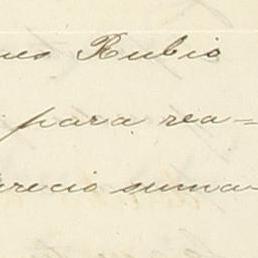 nes Rubio
para rea=
precio suma